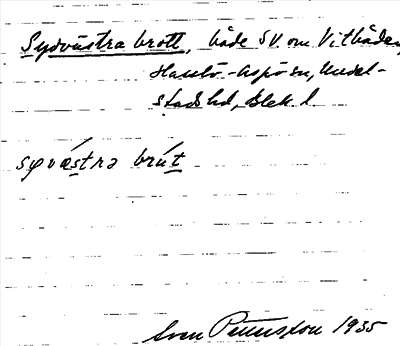 Sydvästra brott, både SV. om Vitbåden,
Hasslö-Aspö sn, Medel-
stads hd, Blek. l.
syvæstra brút
Sven Petersson 1935